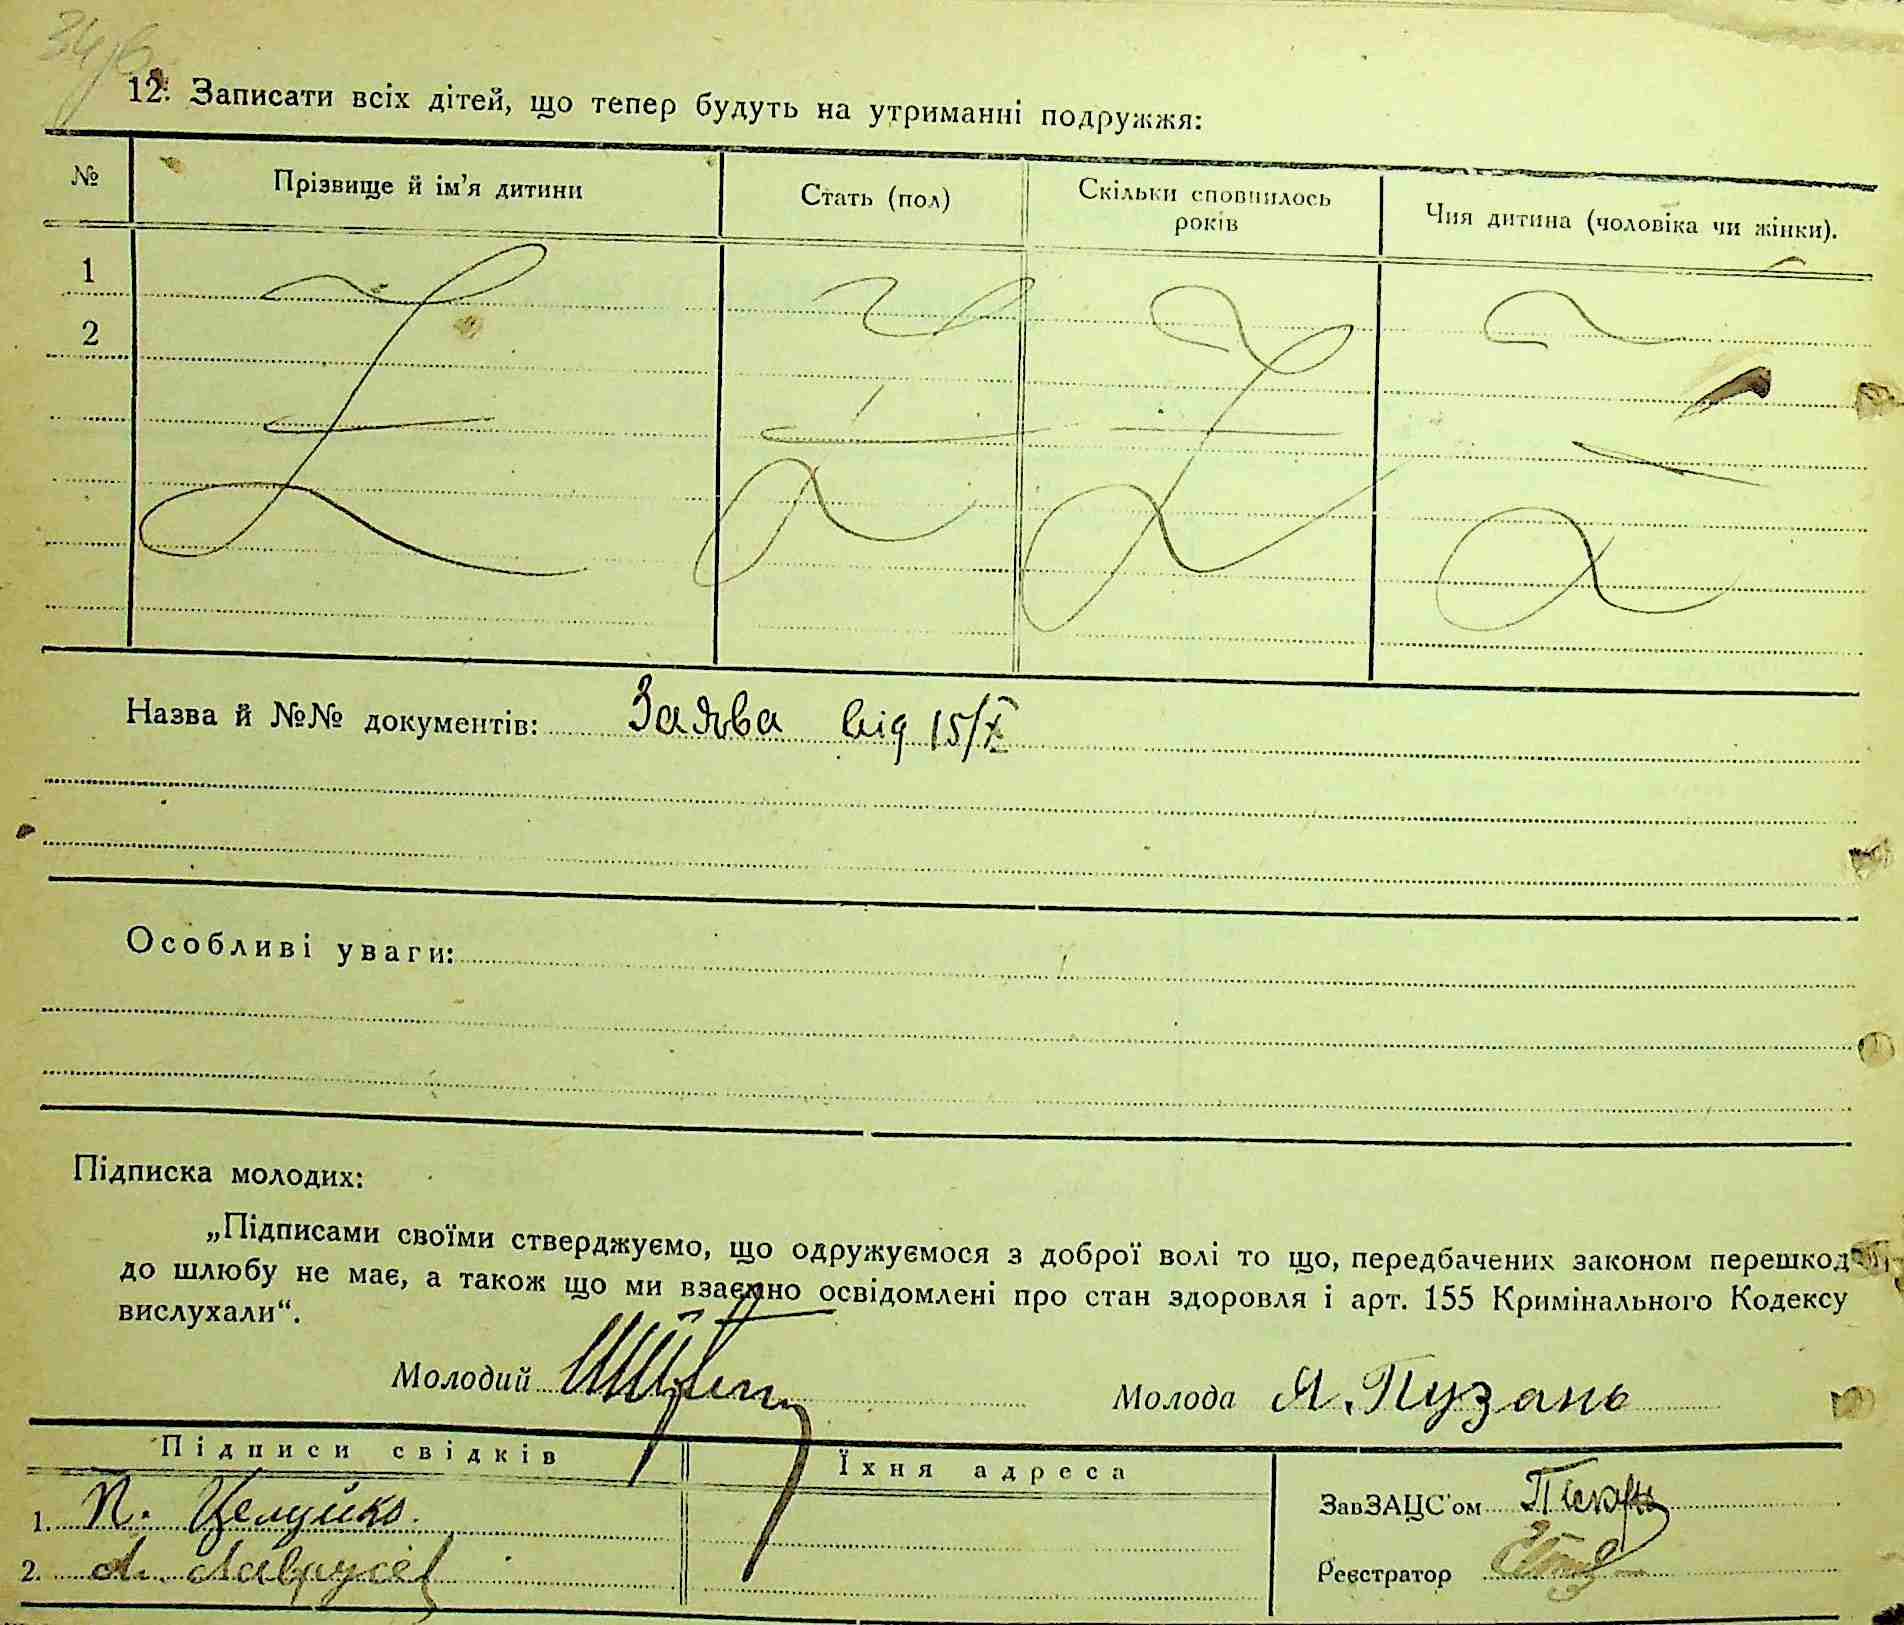 12. Записати всіх дітей, що тепер будуть на утриманні подружжя:
№ Прізвище й ім'я дитини Стать (пол) Скільки сповнилось років Чия дитина (чоловіка чи жінки).
1
2
Назва й №№ документів: Заява від 15/X
Особливі уваги:
Підписка молодих:
„Підписами своїми стверджуємо, що одружуємося з доброї волі то що, передбачених законом перешкод
до шлюбу не має, а також що ми взаємно освідомлені про стан здоровля і арт. 155 Кримінального Кодексу
вислухали“.
Молодий Молода Я. Пузань
Підписи свідків Їхня адреса
1. П. Целуйко ЗавЗАЦС'ом
2. Реєстратор